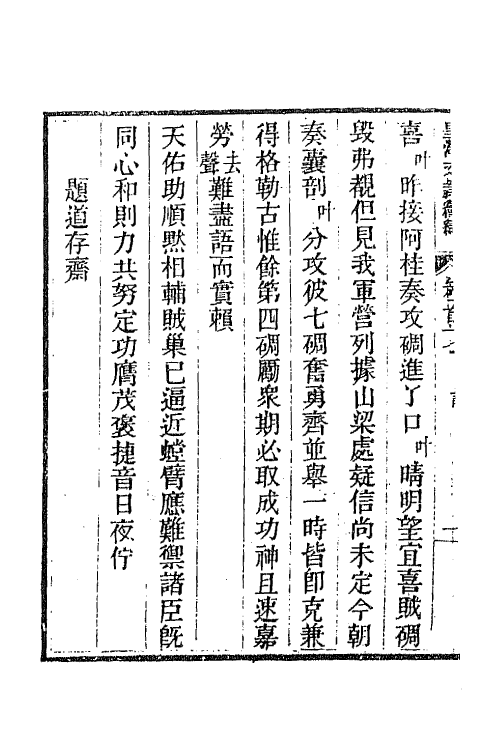 喜叶昨接阿桂奏攻碉進丫口叶晴明望宜喜賊碉
毀弗覩但見我軍營列據山梁處疑信尚未定今朝
奏囊剖叶分攻彼七碉奮勇齊並舉一時皆即克兼
得格勒古惟餘第四碉勵衆期必取成功神且速嘉
勞去聲難盡語而實賴
天佑助順黙相輔賊巢已逼近螳臂應難禦諸臣旣
同心和則力共努定功膺茂褒捷音日夜佇
題道存齋